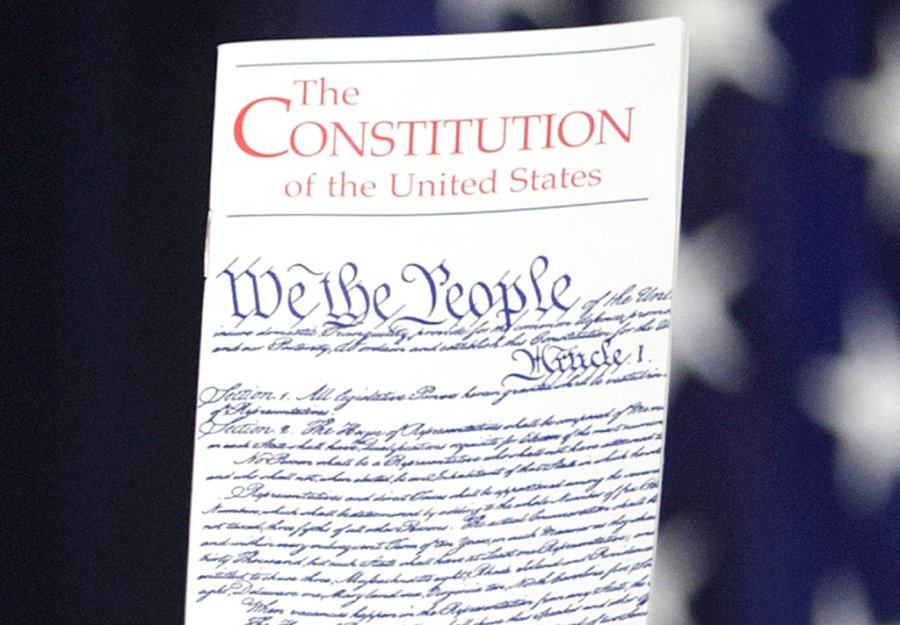 The
CONSTITUTION
of the United States
We the People of the Uni
insure domestic Tranquility, provide for the common defence, promo
and our Posterity, do ordain and establish this Constitution for the U
Article I.
Section. 1. All legislative Powers herein granted shall be vested in a
of Representatives.
Section. 2. The House of Representatives shall be composed of Mem
in each State shall have Qualifications requisite for Electors of the most numerou
No Person shall be a Representative who shall not have attained t
and who shall not, when elected, be an Inhabitant of that State in which he shall
Representatives and direct Taxes shall be apportioned among the several
Numbers, which shall be determined by adding to the whole Number of free
not taxed, three fifths of all other Persons. The actual Enumeration shall be
and within every subsequent Term of ten Years, in such Manner as they shall
thirty Thousand, but each State shall have at Least one Representative; and
entitled to chuse three, Massachusetts eight, Rhode Island and Providence
eight, Delaware one, Maryland six, Virginia ten, North Carolina five,
When vacancies happen in the Representation from any State, the